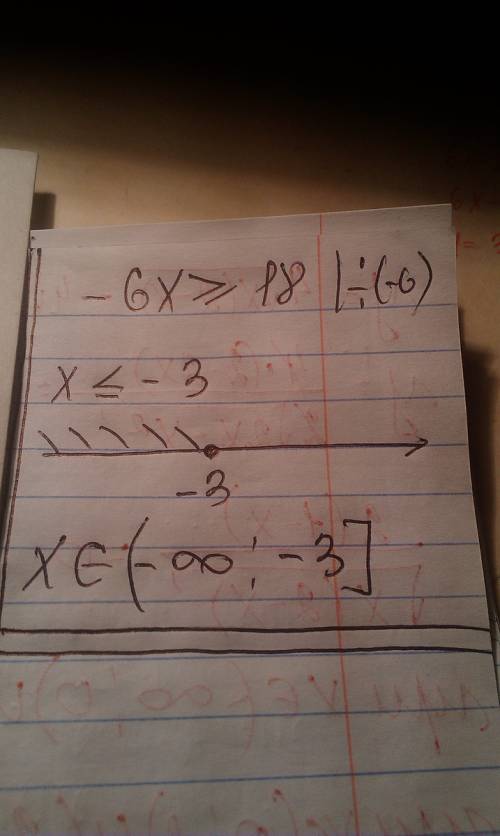 - 6x ≥ 18 |÷(-6)
x ≤ - 3
-3
x ∈ (- ∞; - 3]